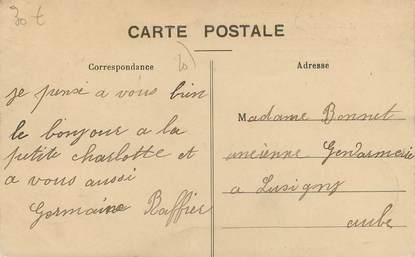 30 t
CARTE POSTALE
Correspondance
Adresse
je pense a vous bien
le bonjour a la
petite charlotte et
a vous aussi
Germaine Raffier
Madame Bonnet
ancienne Gendarmerie
a Lusigny
aube